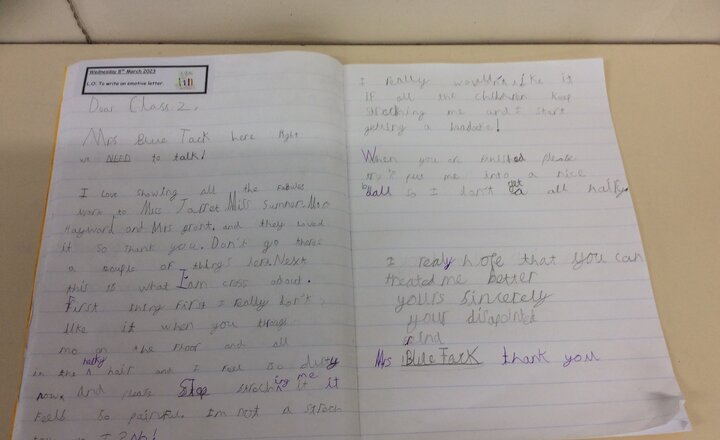 Wednesday 8th March 2023
L.O: To write an emotive letter.
Dear Class 2,
Mrs Blue Tack here Right
we NEED to talk!
I Love showing all the
work to Miss Jarret Miss Sumner Mrs
Hayward and Mrs prost. and they Loved
it so thank you. Don't go theres
a couple of thing's left. Next
this is what I am cross about.
First thing First I really don't
like it when you
me on the Floor and all
in the hairy hair and I feel so dirty
now. And please Stop streching me it
feels so painful. I'm not a strech
I really like it
IF all the children keep
streching me and I start
getting a
When you are finished please
put me into a nice
ball so I don't get all hairy.
I realy hope that you can
treated me better
yours sincerely
your disapointed
Mrs Blue Tack thank you